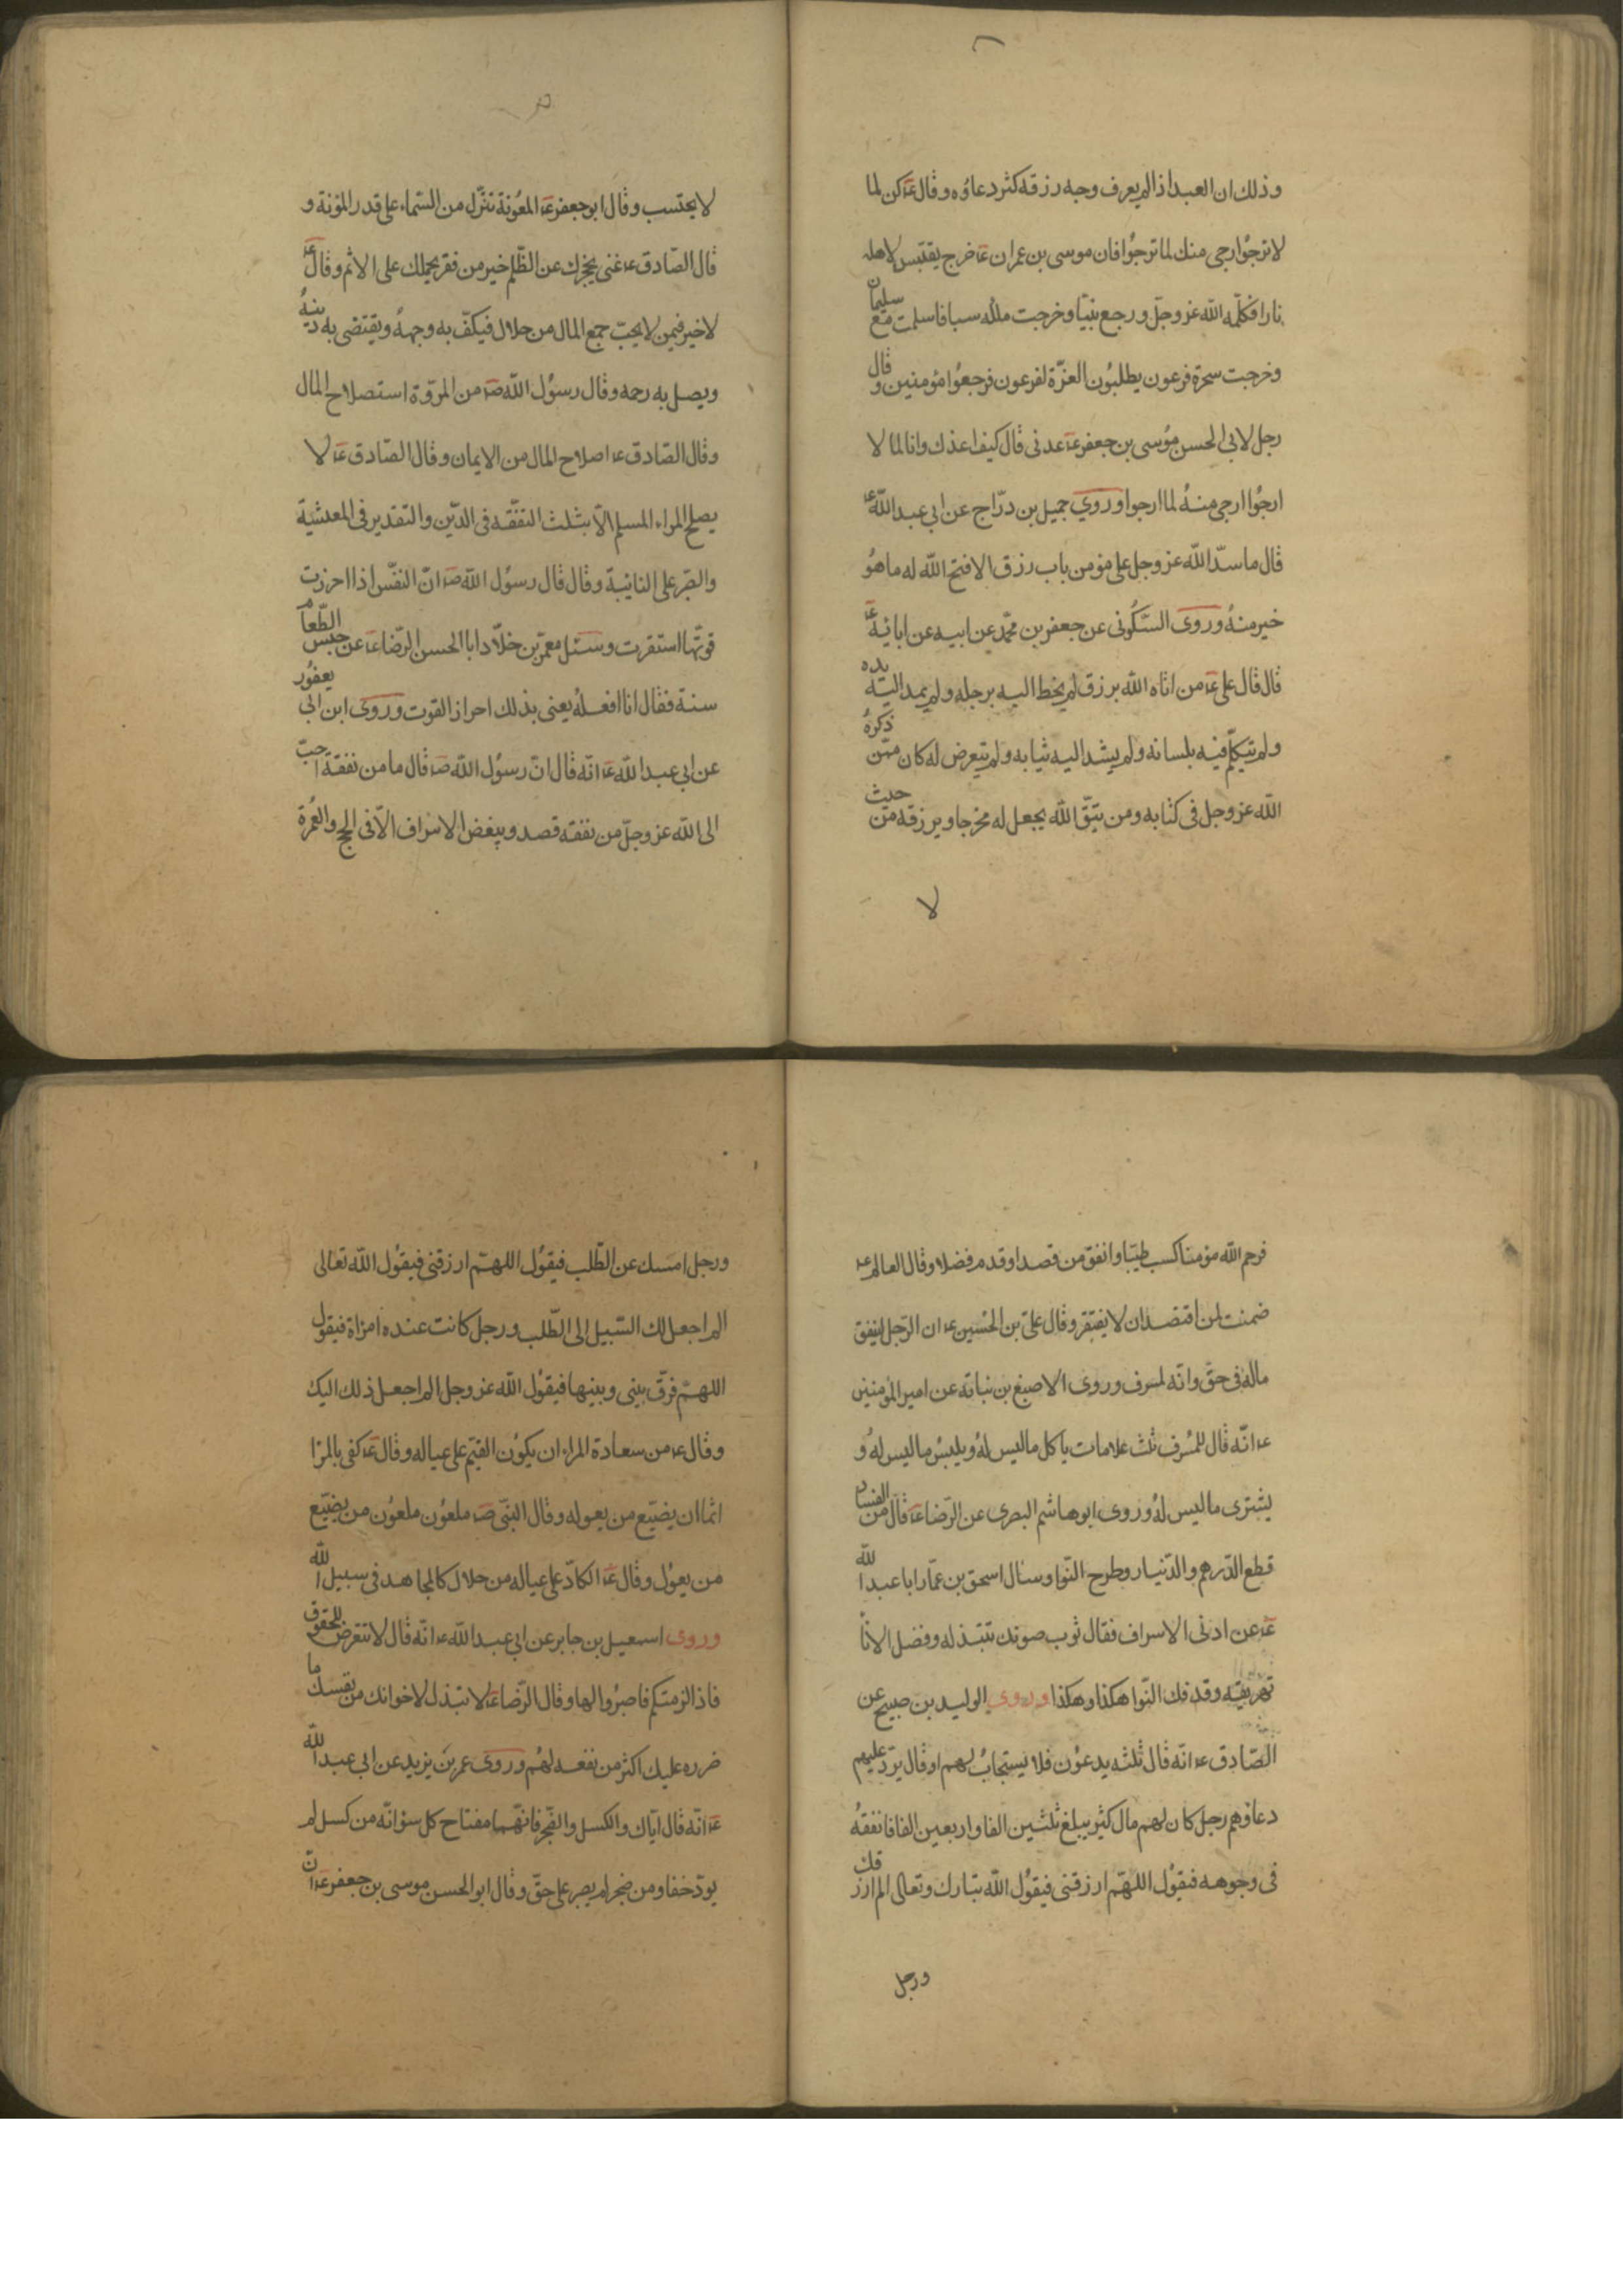 وذلك ان العبد اذا لم يعرف وجه رزقه كثر دعاؤه وقال ع كن لما
لا ترجوا ارجى منك لما ترجوا فان موسى بن عمران ع خرج يقتبس لاهله
نارا فكلّمه الله عز وجلّ ورجع نبيّا وخرجت ملكه سبا فاسلمت مع سليمان
وخرجت سحرة فرعون يطلبون العزّة لفرعون فرجعوا مؤمنين وقال
رجل لابي الحسن موسى بن جعفر ع عدنى قال كيف اعدك وانا لما لا
ارجوا ارجى منه لما ارجوا وروي جميل بن درّاج عن ابي عبد الله ع
قال ما سدّ الله عز وجل على مؤمن باب رزق الا فتح الله له ما هو
خير منه وروى السّكونى عن جعفر بن محمّد عن ابيه عن ابائه ع
قال قال على ع من اتاه الله برزق لم يخط اليه برجله ولم يمد اليه يده
ولم يتكلّم فيه بلسانه ولم يشد اليه ثيابه ولم يتعرض له كان ممّن ذكره
الله عز وجل فى كتابه ومن يتّق الله يجعل له مخرجا ويرزقه من حيث
لا
لا يحتسب وقال ابو جعفر ع المعونة تنزّل من السّماء على قدر المؤنة و
قال الصّادق ع غنى يحجزك عن الظّلم خير من فقر يحملك على الاثم وقال ع
لا خير فيمن لا يحبّ جمع المال من حلال فيكفّ به وجهه ويقتضى به دينه
ويصل به رحمه وقال رسول الله ص من المروّة استصلاح المال
وقال الصّادق ع اصلاح المال من الايمان وقال الصّادق ع لا
يصلح المراء المسلم الّا بثلث التفقّه فى الدّين والتقدير فى المعيشة
والصّبر على النائبة وقال قال رسول الله ص انّ النفّس اذا احرزت
قوتها استقرت وسئل معمّر بن خلّاد ابا الحسن الرّضا ع عن حبس الطّعام
سنة فقال انا افعله يعنى بذلك احراز القوت وروى ابن ابى يعفور
عن ابي عبد الله ع انّه قال انّ رسول الله ص قال ما من نفقة احبّ
الى الله عز وجلّ من نفقه قصد ويبغض الاسراف الّا فى الحج والعمرة
فرحم الله مؤمنا كسب طيّبا وانفق من قصد او قدم فضلا وقال العالم ع
ضمنت لمن اقتصد ان لا يفتقر وقال علىّ بن الحسين ع ان الرّجل لينفق
ماله فى حقّ وانّه لمسرف وروى الاصبغ بن نباته عن امير المؤمنين
ع انّه قال للمسرف ثلث علامات ياكل ما ليس له ويلبس ما ليس له و
يشترى ما ليس له وروى ابو هاشم البصرى عن الرّضا ع قال من الفساد
قطع الدّرهم والدّينار وطرح النّوا وسئال اسحق بن عمّار ابا عبد الله
ع عن ادنى الاسراف فقال ثوب صونك تبتذله وفضل الاناء
تهريقه وقد فك النّوا هكذا وهكذا وروى الوليد بن صبيح عن
الصّادق ع انّه قال ثلثه يدعون فلا يستجاب لهم او قال يردّ عليهم
دعاؤهم رجل كان لهم مال كثير يبلغ ثلثين الفا واربعين الفا فانفقه
فى وجوهه فيقول اللهمّ ارزقنى فيقول الله تبارك وتعالى الم ارزقك
ورجل
ورجل امسك عن الطّلب فيقول اللهمّ ارزقنى فيقول الله تعالى
الم اجعل لك السّبيل الى الطّلب ورجل كانت عنده امراة فيقول
اللهمّ فرّق بينى وبينها فيقول الله عز وجل الم اجعل ذلك اليك
وقال ع من سعادة المراء ان يكون القيّم على عياله وقال ع كفى بالمرا
اثما ان يضيّع من يعوله وقال النبّى ص ملعون ملعون من يضيّع
من يعول وقال ع الكادّ على عياله من حلال كالمجاهد فى سبيل الله
وروى اسمعيل بن جابر عن ابي عبد الله ع انّه قال لا تتعرض للحقوق
فاذا لزمتكم فاصبروا لها وقال الرّضا ع لا تبذل لاخوانك من نفسك ما
ضرره عليك اكثر من نفعه لهم وروى عمر بن يزيد عن ابي عبد الله
ع انّه قال ايّاك والكسل والضّجر فانّهما مفتاح كل سؤ انّه من كسل لم
يودّ حقّا ومن ضجر لم يصبر على حقّ وقال ابو الحسن موسى بن جعفر ع انّ